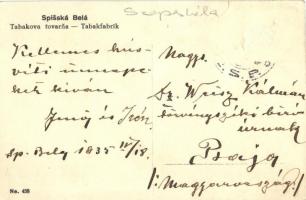 Szepesbéla
Spišská Belá
Tabakova továrňa — Tabakfabrik
Kellemes hús-
véti ünnepe-
ket kíván
Jenő és Irén
Sp. Bela 1935 IV/18.
Nagys.
Dr. Weisz Kálmán
törvényszéki bíró
úrnak
Baja
/: Magyarország :/
No. 438